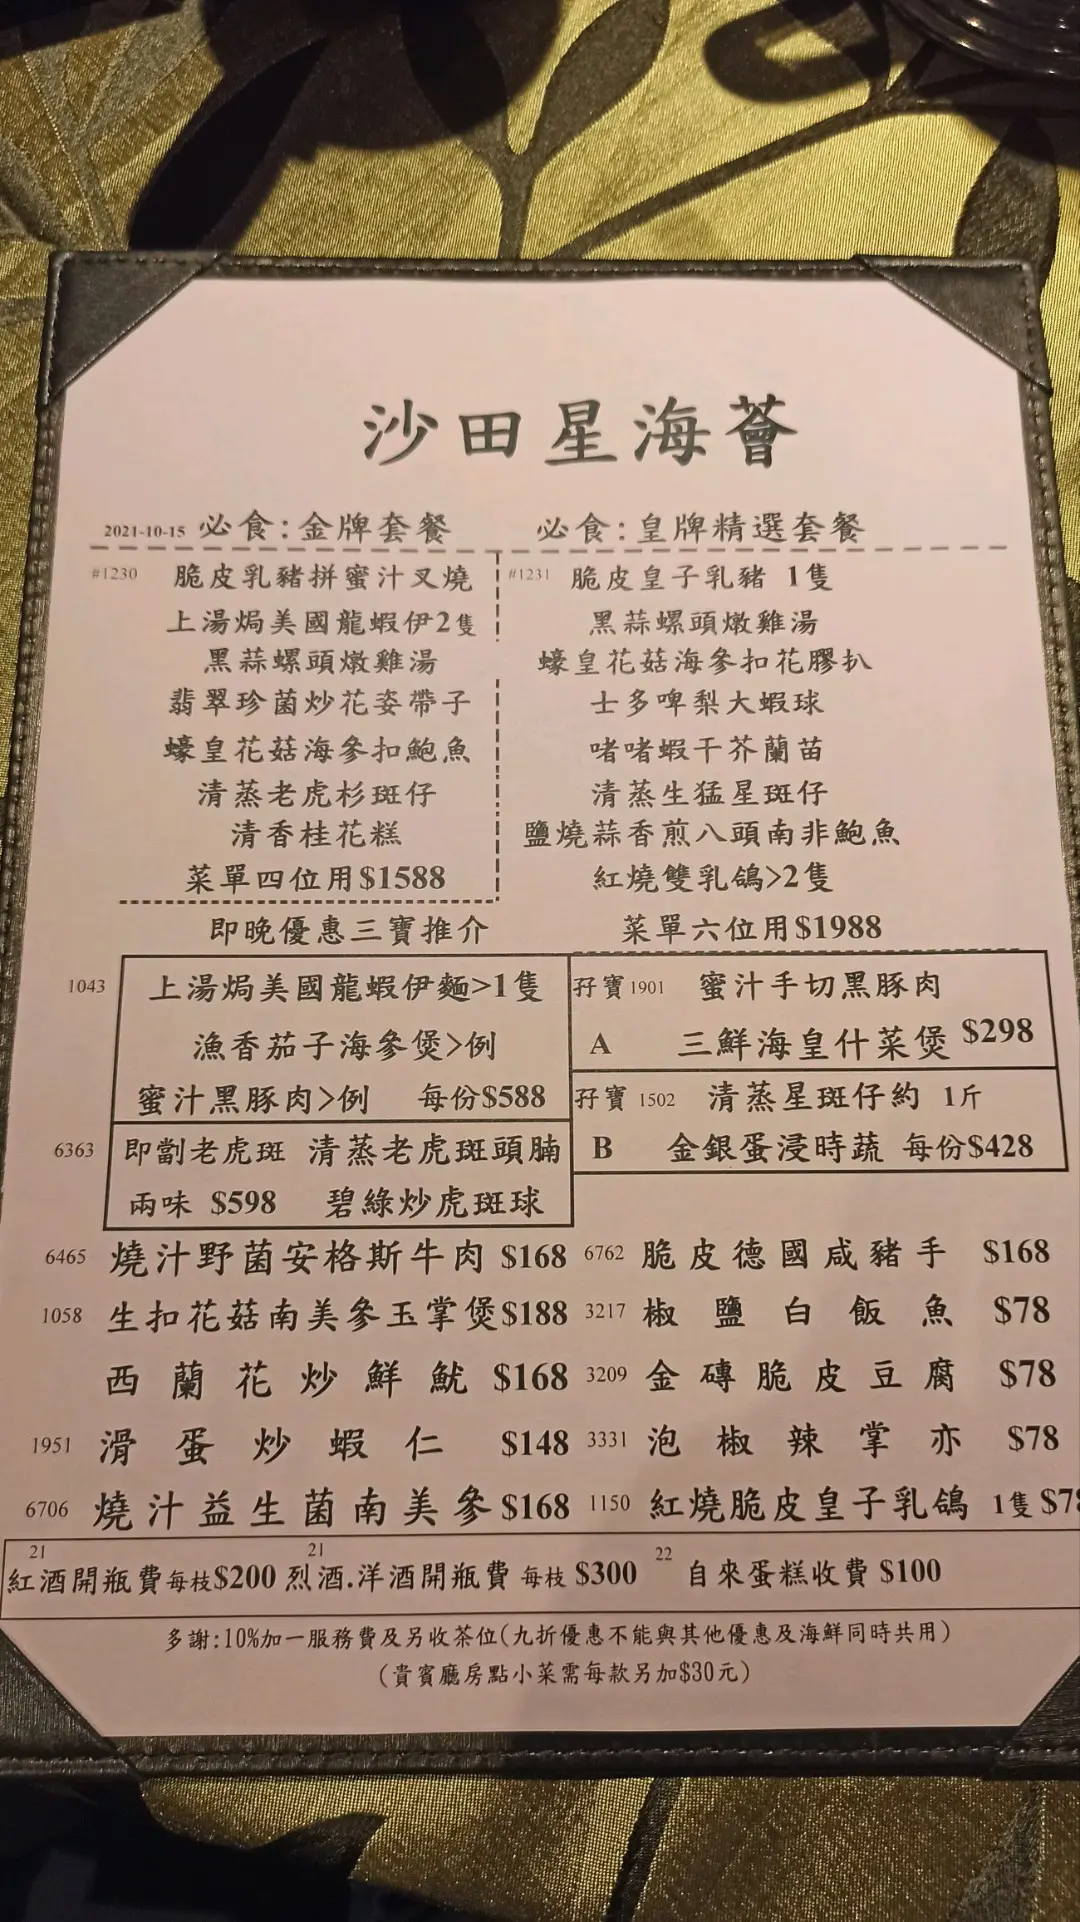 沙田星海薈
2021-10-15 必食:金牌套餐
必食:皇牌精選套餐
#1230 脆皮乳豬拼蜜汁叉燒
上湯焗美國龍蝦伊2隻
黑蒜螺頭燉雞湯
翡翠珍菌炒花姿帶子
蠔皇花菇海參扣鮑魚
清蒸老虎杉斑仔
清香桂花糕
菜單四位用$1588
#1231 脆皮皇子乳豬 1隻
黑蒜螺頭燉雞湯
蠔皇花菇海參扣花膠扒
士多啤梨大蝦球
啫啫蝦干芥蘭苗
清蒸生猛星斑仔
鹽燒蒜香煎八頭南非鮑魚
紅燒雙乳鴿>2隻
菜單六位用$1988
即晚優惠三寶推介
1043 上湯焗美國龍蝦伊麵>1隻
漁香茄子海參煲>例
蜜汁黑豚肉>例 每份$588
孖寶 1901 蜜汁手切黑豚肉
A 三鮮海皇什菜煲 $298
孖寶 1502 清蒸星斑仔約 1斤
B 金銀蛋浸時蔬 每份$428
6363 即劏老虎斑 清蒸老虎斑頭腩
兩味 $598 碧綠炒虎斑球
6465 燒汁野菌安格斯牛肉 $168
6762 脆皮德國咸豬手 $168
1058 生扣花菇南美參玉掌煲$188
3217 椒鹽白飯魚 $78
西蘭花炒鮮魷 $168
3209 金磚脆皮豆腐 $78
1951 滑蛋炒蝦仁 $148
3331 泡椒辣掌亦 $78
6706 燒汁益生菌南美參 $168
1150 紅燒脆皮皇子乳鴿 1隻 $78
21 紅酒開瓶費每枝$200 21 烈酒.洋酒開瓶費 每枝 $300 22 自來蛋糕收費 $100
多謝:10%加一服務費及另收茶位(九折優惠不能與其他優惠及海鮮同時共用)
(貴賓廳房點小菜需每款另加$30元)